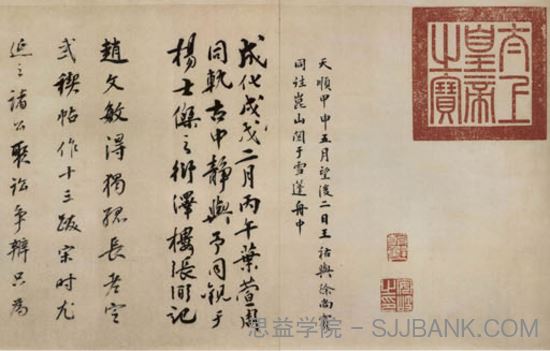 太上皇帝之寶
天順甲申五月望後二日王祐與徐尚賓
同往崑山閱于雪蓬舟中
成化戊戌二月丙午葉萱周
同軌古中靜與予同觀于
楊士傑之衍澤樓張記
趙文敏得獨孤長老定
武禊帖作十三跋宋時尤
延之諸公聚訟爭辯只為
思益学院 - SJJBANK.COM